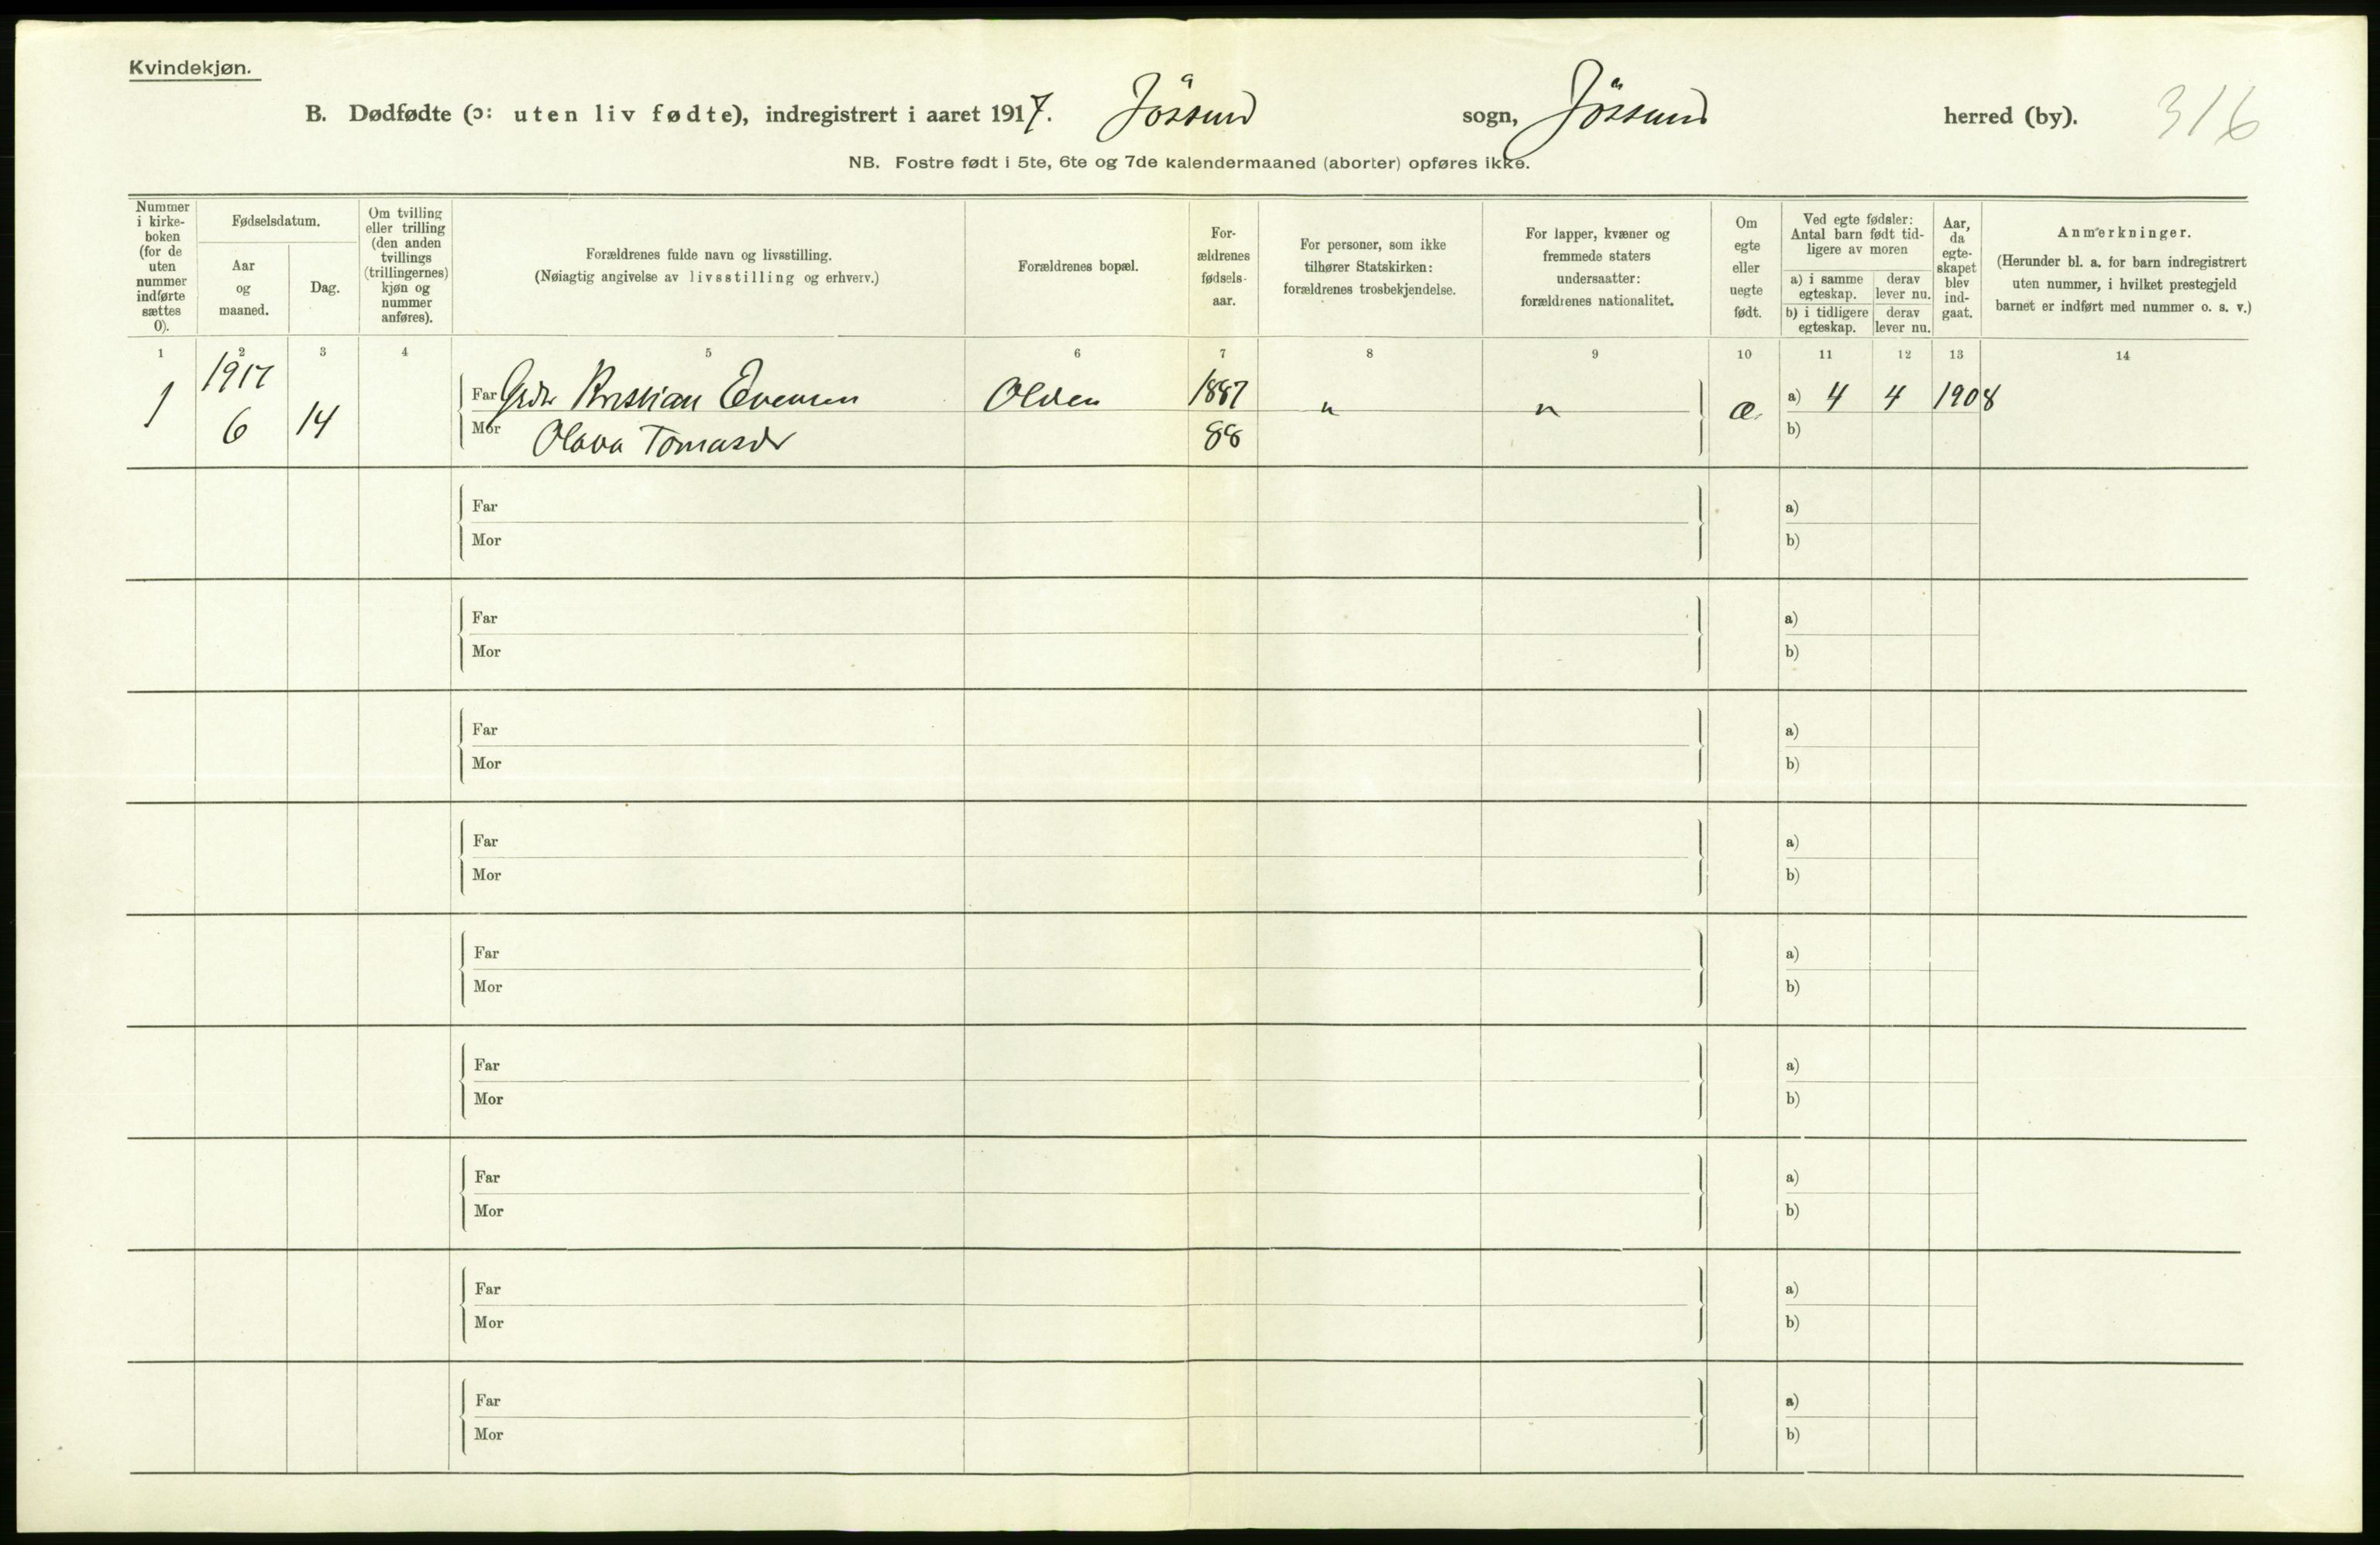 Kvindekjøn.
B. Dødfødte (ɔ: uten liv fødte), indregistrert i aaret 1917. Jössund sogn, Jössund herred (by). 316
NB. Fostre født i 5te, 6te og 7de kalendermaaned (aborter) opføres ikke.
Nummer i kirke- boken (for de uten nummer indførte sættes 0).
Fødselsdatum.
Aar og maaned.
Dag.
Om tvilling eller trilling (den anden tvillings (trillingernes) kjøn og nummer anføres).
Forældrenes fulde navn og livsstilling.
(Nøiagtig angivelse av livsstilling og erhverv.)
Forældrenes bopæl.
For- ældrenes fødsels- aar.
For personer, som ikke tilhører Statskirken: forældrenes trosbekjendelse.
For lapper, kvæner og fremmede staters undersaatter: forældrenes nationalitet.
Om egte eller uegte født.
Ved egte fødsler: Antal barn født tid- ligere av moren
a) i samme egteskap.
derav lever nu.
b) i tidligere egteskap.
derav lever nu.
Aar, da egte- skapet blev ind- gaat.
Anmerkninger.
(Herunder bl. a. for barn indregistrert uten nummer, i hvilket prestegjeld barnet er indført med nummer o. s. v.)
1 2 3 4 5 6 7 8 9 10 11 12 13 14
1917
1 6 14
Far Kristian Evensen Olden 1887 " " æ. a) 4 4 1908
Mor Olava Tomasdr 88 b)
Far a)
Mor b)
Far a)
Mor b)
Far a)
Mor b)
Far a)
Mor b)
Far a)
Mor b)
Far a)
Mor b)
Far a)
Mor b)
Far a)
Mor b)
Far a)
Mor b)